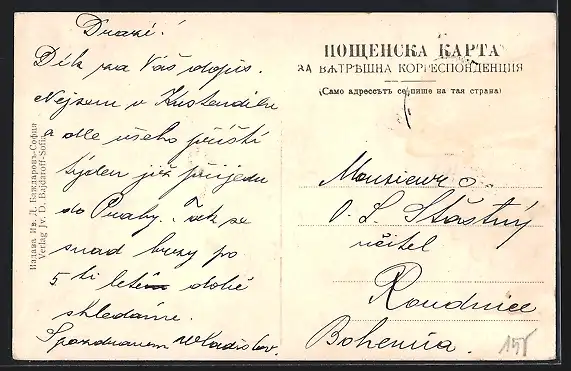 Drazí!
Dík za Váš dopis.
Nejsem v Kustendilu
a dle všeho příští
týden již přijedu
do Prahy. Tak se
snad brzy po
5ti letém době
shledáme.
S pozdravem Vladislav.
Издава Ив. Д. Байдаровъ-София
Verlag Jv. D. Bajdaroff-Sofia
ПОЩЕНСКА КАРТА
ЗА ВѪТРѢШНА КОРРЕСПОНДЕНЦИЯ
(Само адрессътъ се пише на тая страна)
Monsieur
O. L. Šťastný
učitel
Roudnice
Bohemia.
15